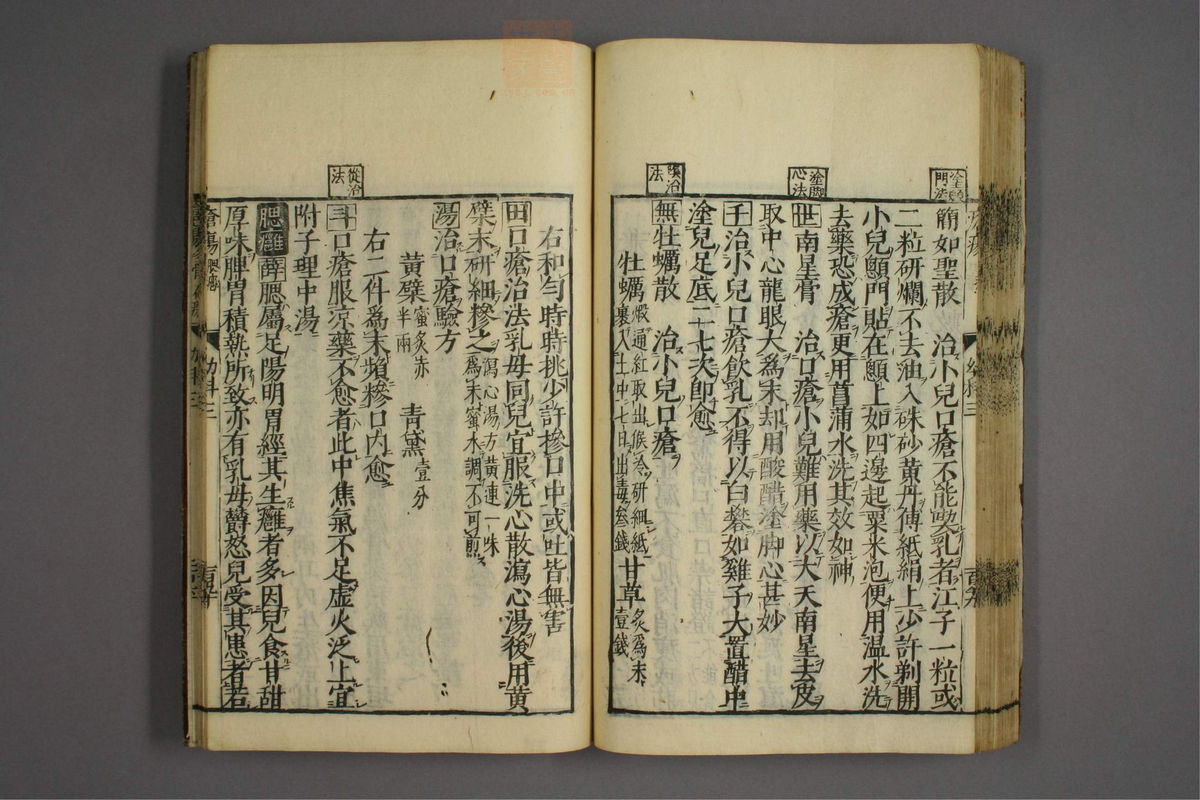 塗顖門法
簡如聖散　治小兒口瘡不能喫乳者江子一粒或
二粒研爛不去油入硃砂黃丹傅紙絹上少許剃開
小兒顖門貼在顖上如四邊起粟米泡便用溫水洗
去藥恐成瘡更用菖蒲水洗其效如神
塗脚心法
世南星膏　治口瘡小兒難用藥以大天南星去皮
取中心龍眼大爲末却用酸醋塗脚心甚妙
千治小兒口瘡飲乳不得以白礬如雞子大置醋中
塗兒足底二七次即愈
治法
無牡蠣散　治小兒口瘡
牡蠣煅通紅取出候冷研細紙裹入土中七日出毒叁錢　甘草炙爲末壹錢
右和勻時時挑少許摻口中或吐皆無害
田口瘡治法乳母同兒宜服洗心散瀉心湯後用黃
檗末研細摻之瀉心湯方黃連一味爲末蜜水調不可煎
湯治口瘡驗方
黃檗蜜炙赤半兩　青黛壹分
右二件爲末頻摻口內愈
從治法
斗口瘡服凉藥不愈者此中焦氣不足虛火泛上宜
附子理中湯
腮癰　薛腮屬足陽明胃經其生癰者多因兒食甘甜
厚味脾胃積熱所致亦有乳母欝怒兒受其患者若
瘡瘍
幼科三